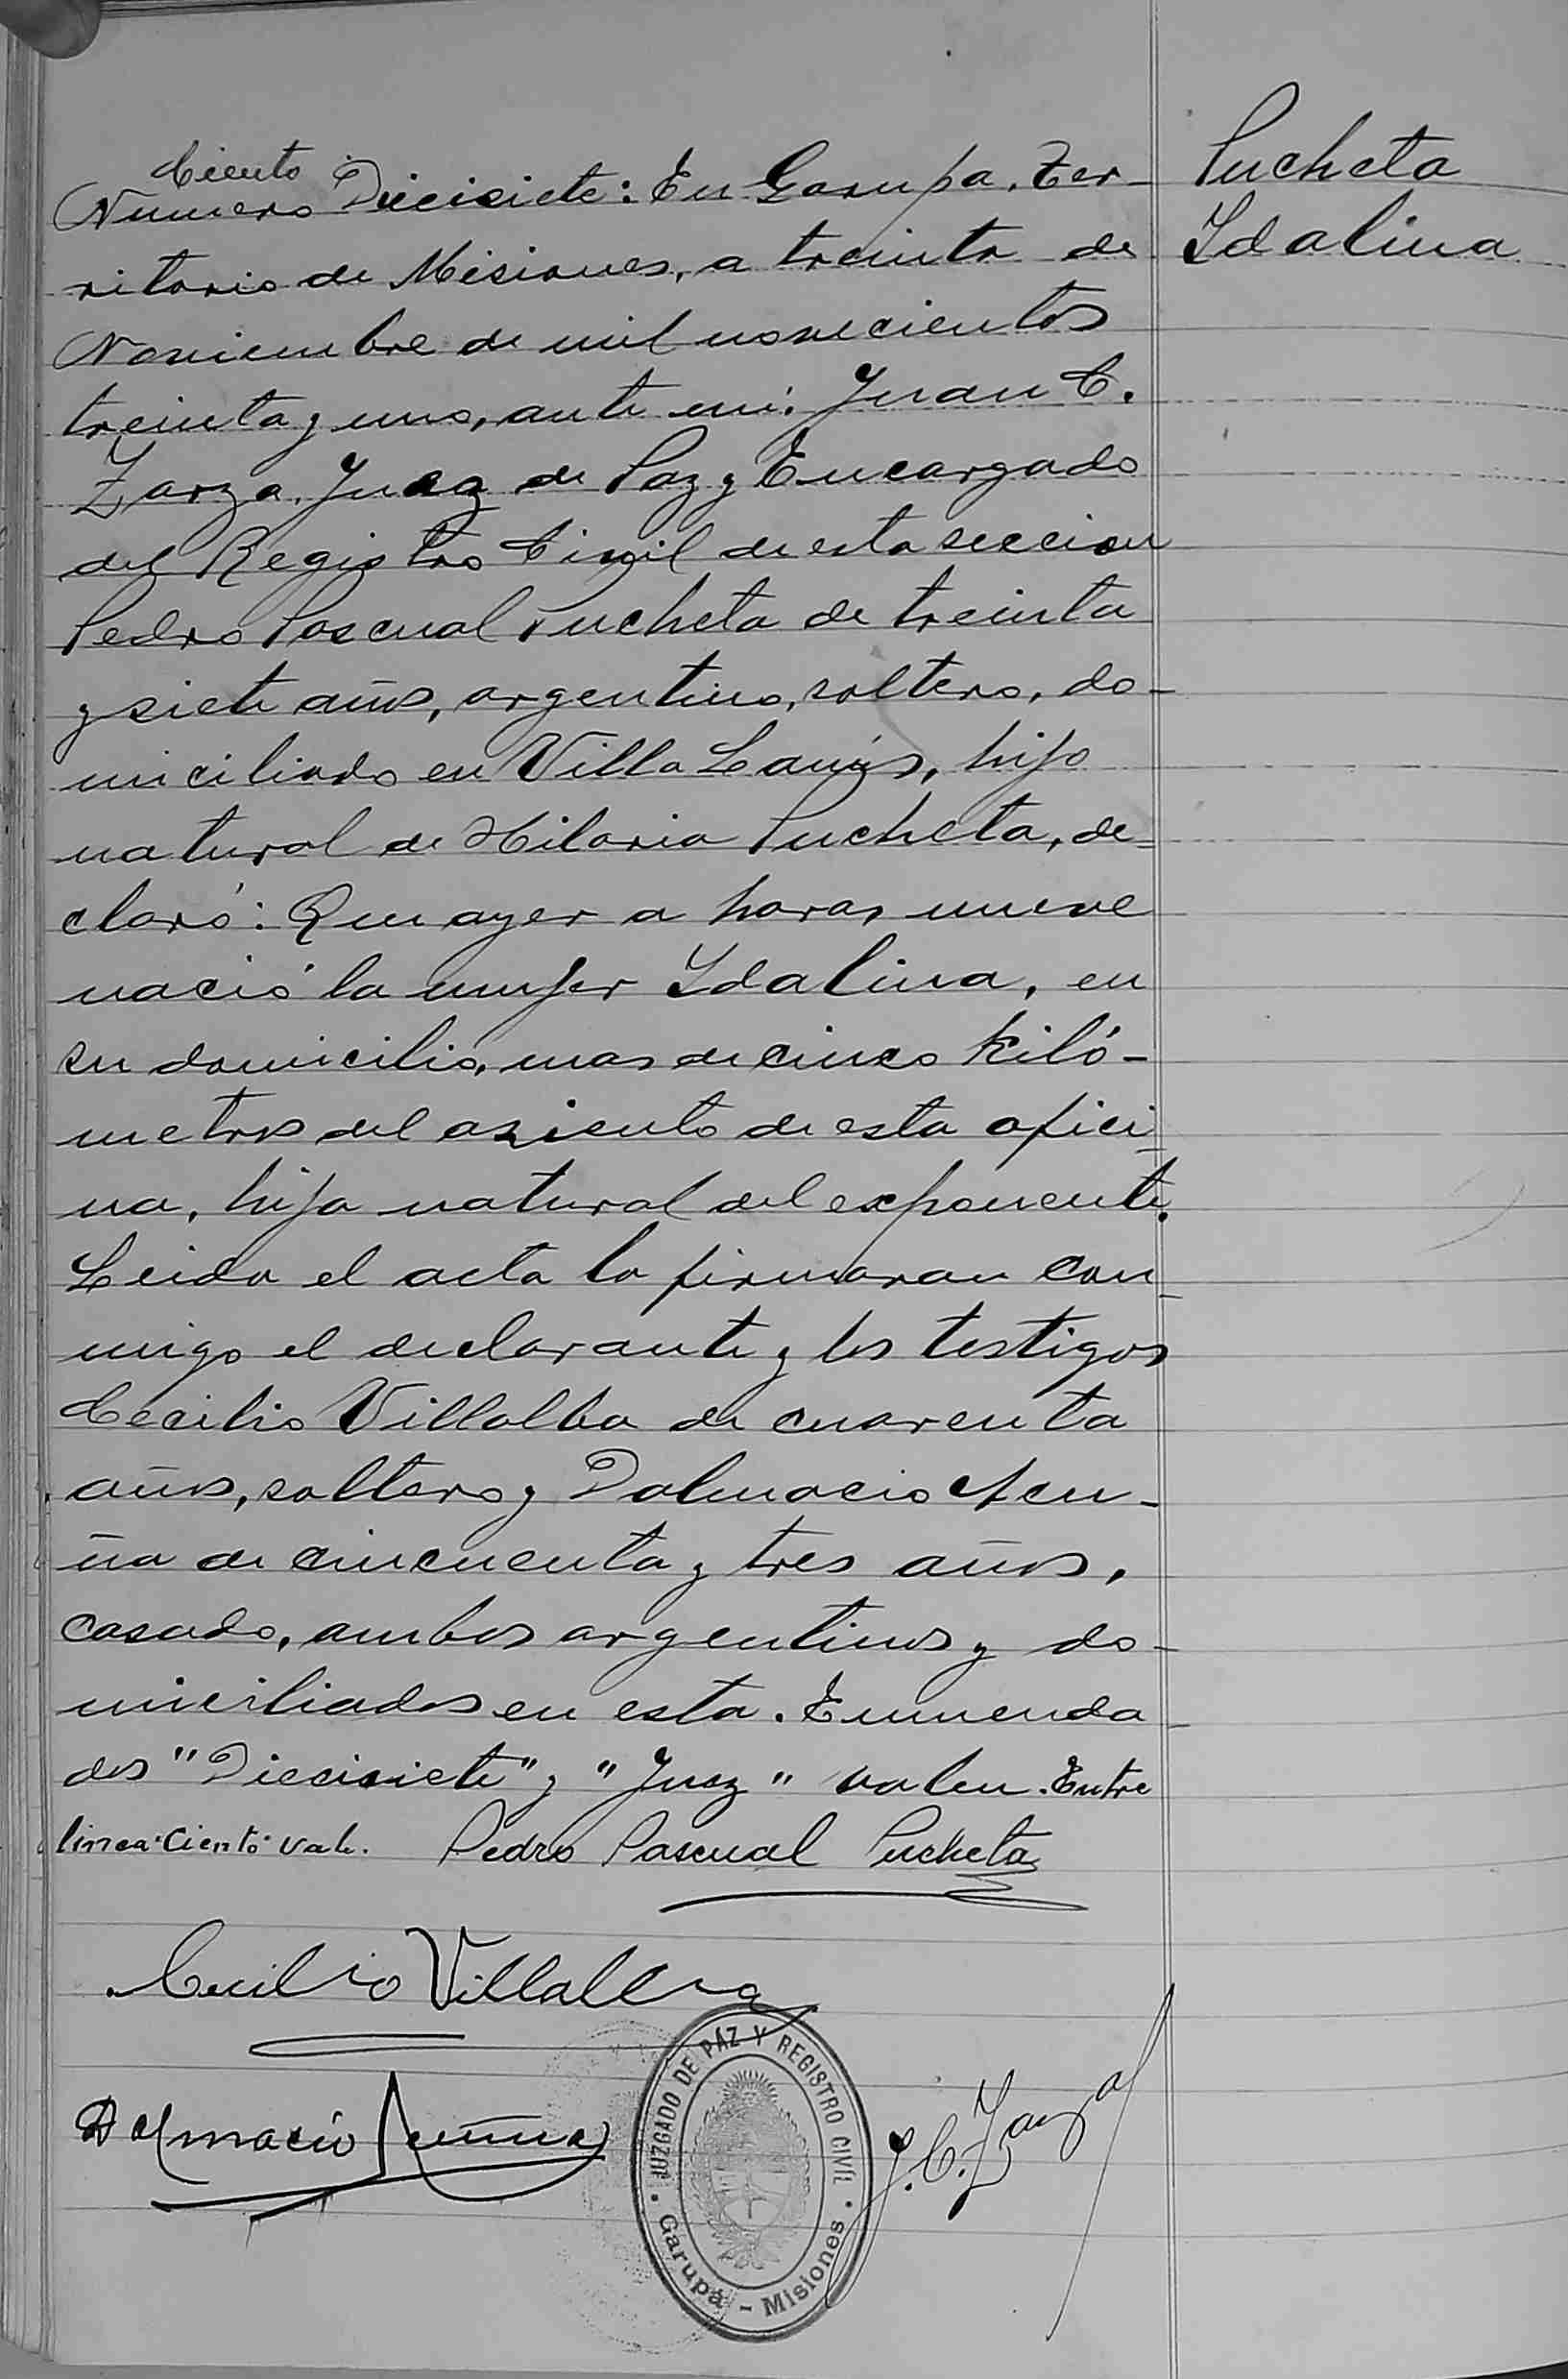 Pucheta
Ydalina
Ciento
Número Diecisiete: En Garupa, Ter-
ritorio de Misiones, a treinta de
Noviembre de mil novecientos
treinta y uno, ante mi: Juan C.
Zarza, Juez de Paz y Encargado
del Registro Civil de esta seccion
Pedro Pascual Pucheta de treinta
y siete años, argentino, soltero, do-
miciliado en Villa Lanús, hijo
natural de Hilaria Pucheta, de=
claró: Que ayer a horas nueve
nació la mujer Ydalina, en
su domicilio, mas de cinco kiló-
metros del asiento de esta ofici-
na, hija natural del exponente.
Leida el acta la firmaran con-
migo el declarante y los testigos
Cecilio Villalba de cuarenta
años, soltero y Dalmacio Acu-
ña de cincuenta y tres años,
casado, ambos argentinos y do-
miciliados en esta. Enmenda-
dos "Diecisiete" y "Juez" valen. Entre
linea "Ciento" vale. Pedro Pascual Pucheta
Cecilio Villalba
Dalmacio Acuña
J. C. Zarza
JUZGADO DE PAZ Y REGISTRO CIVIL
Garupá - Misiones